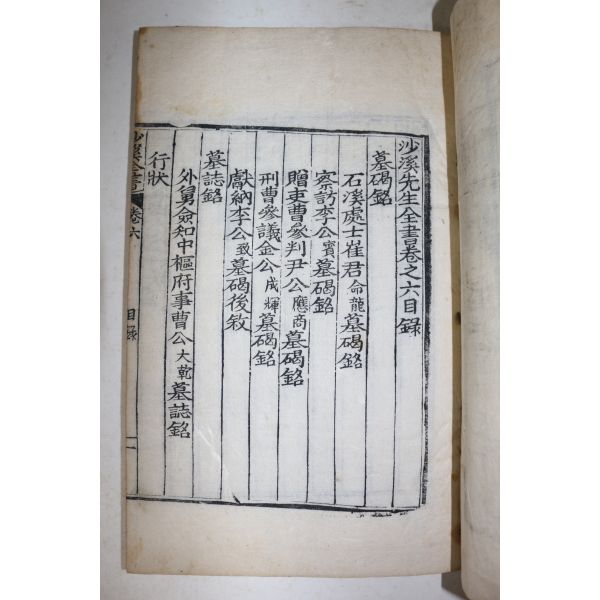 沙溪先生全書卷之六目錄
墓碣銘
石溪處士崔君命龍墓碣銘
察訪李公寶墓碣銘
贈吏曹參判尹公應商墓碣銘
刑曹參議金公成輝墓碣銘
獻納李公致墓碣後敘
墓誌銘
外舅僉知中樞府事曹公大乾墓誌銘
行狀
沙溪全書 卷六 目錄 一